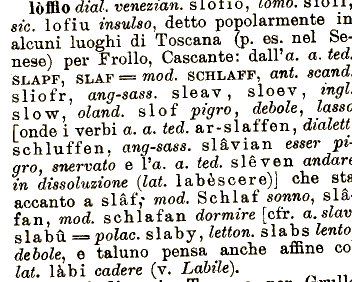 lòffio dial. venezian. slofio, lomb. slofi,
sic. lofiu insulso, detto popolarmente in
alcuni luoghi di Toscana (p. es. nel Se-
nese) per Frollo, Cascante: dall'a. a. ted.
SLAPF, SLAF = mod. SCHLAFF, ant. scand.
sliofr, ang-sass. sleav, sloev, ingl.
slow, oland. slof pigro, debole, lasso
[onde i verbi a. a. ted. ar-slaffen, dialett.
schluffen, ang-sass. slâvian esser pi-
gro, snervato e l'a. a. ted. slêven andare
in dissoluzione (lat. labèscere)] che sta
accanto a slâf, mod. Schlaf sonno, slâ-
fan, mod. schlafan dormire [cfr. a. slav
slabû = polac. slaby, letton. slabs lento,
debole, e taluno pensa anche affine co
lat. làbi cadere (v. Labile).